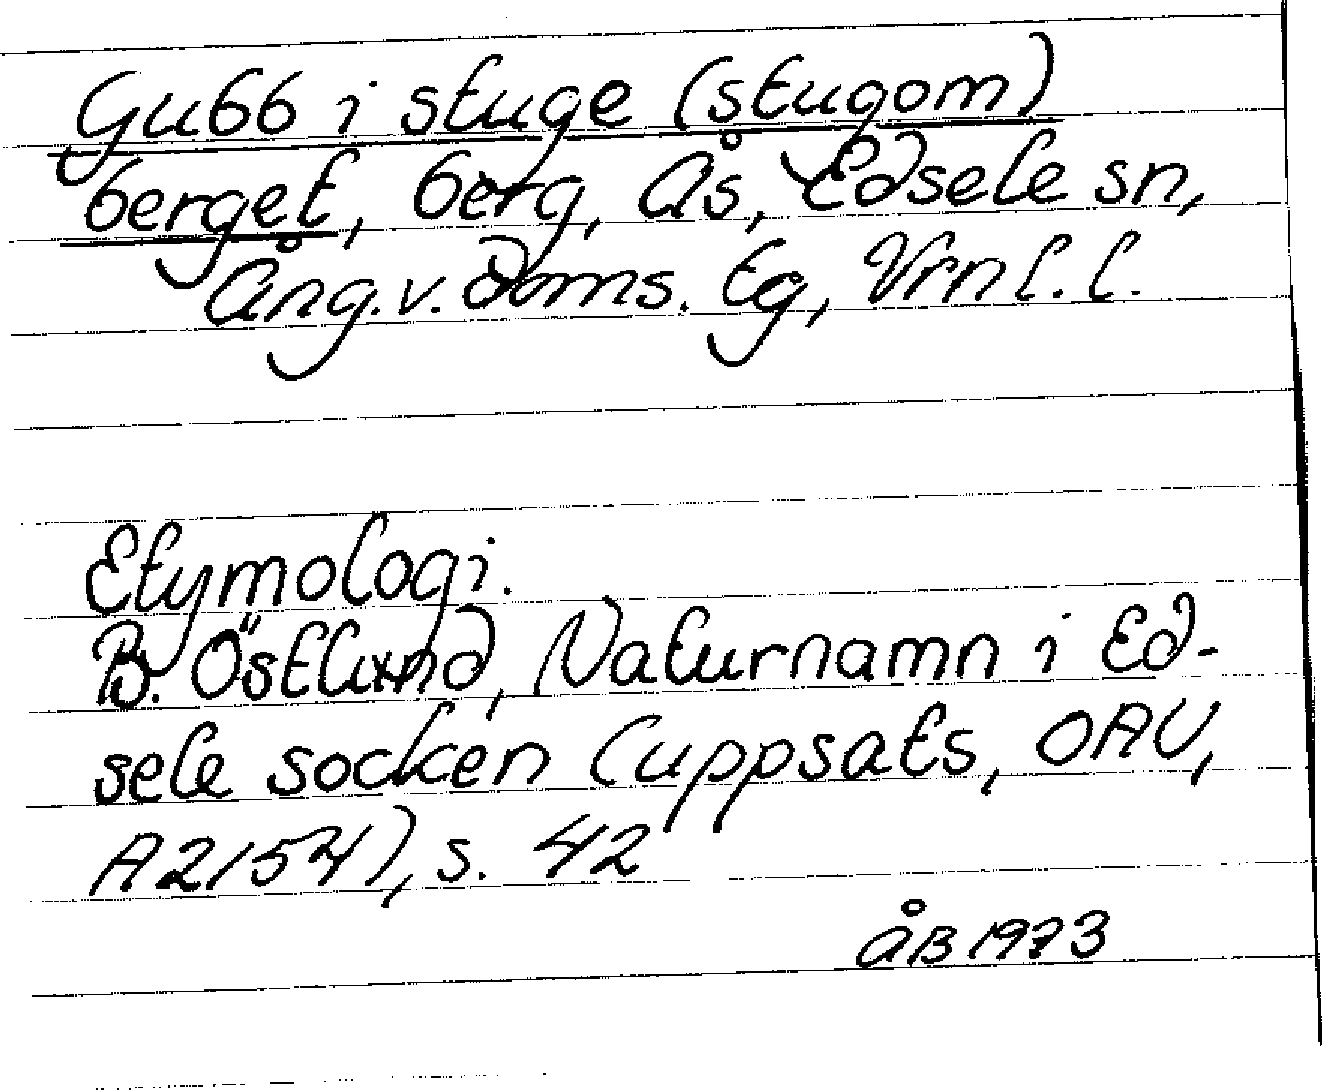 Gubb i stuge (stugom)
berget, berg, Ås, Edsele sn,
Ång. v. doms. tg, Vrnl. l.
Etymologi.
B. Östlund, Naturnamn i Ed-
sele socken (uppsats, OAU,
A2154), s. 42
ÅB 1973